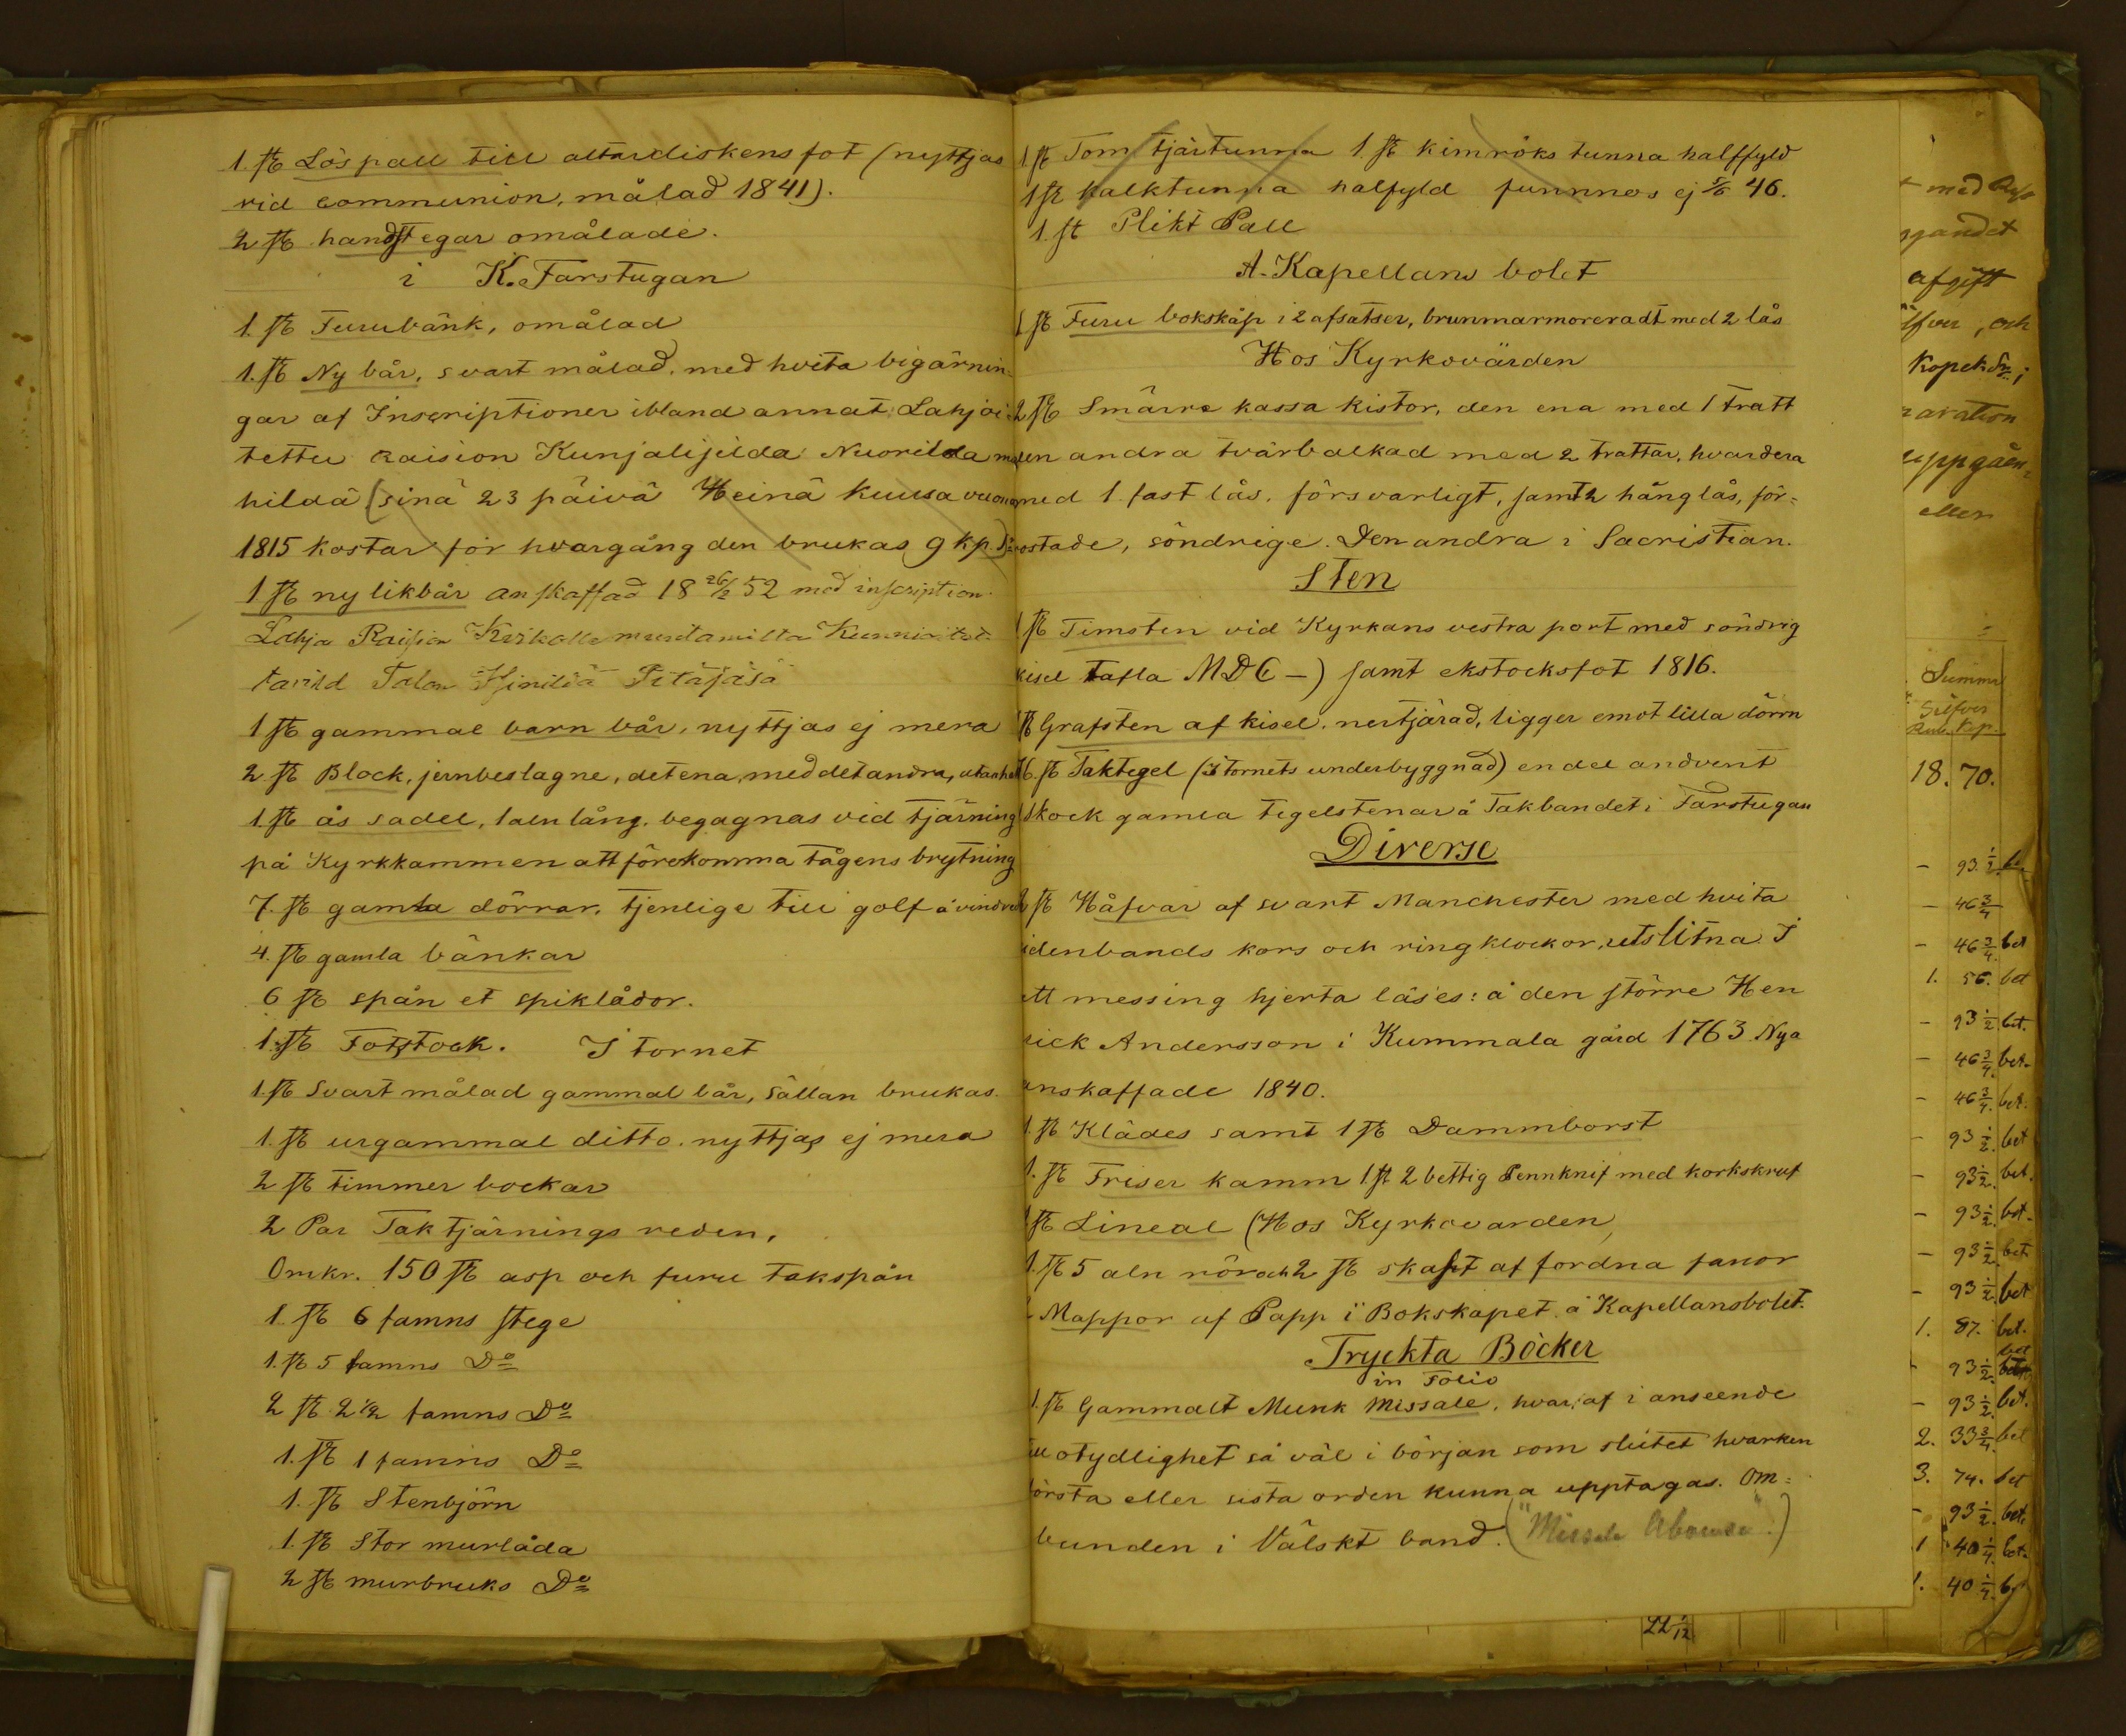 1. st Lös pall till altardiskens fot (nyttjas
vid communion, målad 1841).
2 st handstegar omålade.
i K. Farstugan
1. st Furubänk, omålad
1. st Ny bår, svart målad, med hvita bigärnin-
gar af Inscriptioner ibland annat: Lahjoi-
tettu Raision Kunjalijilda Nuorilda
hildä (sinä 23 päivä Heinä Kuusa
1815 kostar för hvargång den brukas 9 kp.
1 st ny likbår anskaffad 18 26/2 52 med inscription.
Lahja Raision
Talon
1 st gammal barn bår, nyttjas ej mera
2 st Block, jernbeslagne, det ena med det andra, utan
1. st ås sadel, 1 aln lång. begagnas vid tjärning
på Kyrkkammen att förekomma tågens brytning
7. st gamla dörrar, tjenlige till golf å
4. st gamla bänkar
6 st spån et spiklådor.
1. st Fotstock. I tornet
1. st Svart målad gammal bår, sällan brukas.
1. st urgammal ditto. nyttjas ej mera
2 st timmer bockar
2 Par Tak tjärnings reden,
Omkr. 150 st asp och furu takspån
1 st 6 famns stege
1. st 5 famns Do
2 st 2 1/2 famns Do
1. st 1 famns Do
1. st Stenbjörn
1. st Stor murlåda
2 st murbruks Do
1. st Tom tjärtunna 1. st kimröks tunna halffyld
1 st kalktunna halfyld funnnos ej 5/6 46.
1. st Plikt Pall
A. Kapellans bolet
1 st Furu bokskåp i 2 afsatser, brunmarmoreradt med 2 lås
Hos Kyrkovärden
2 st Smärre kassa kistor, den ena med 1 tratt
den andra tvärbalkad med 2 trattar, hvardera
med 1 fast lås, försvarligt, samt 2 hänglås, för-
rostade, söndrige. Den andra i Sacristian.
Sten
1 st Timsten vid Kyrkans vestra port med söndrig
kisel tafla MDC –) samt ekstocksfot 1816.
1 st Grafsten af kisel, nertjärad, ligger emot lilla dörrn
6. st Taktegel (i tornets underbyggnad) en del andvent
1 skock gamla tegelstenar å Takbandet i Farstugan
Diverse
2 st Håfvar af svart Manchester med hvita
sidenbands kors och ringklockor, utslitna. I
ett messing hjerta läses: å den större Hen
rick Andersson i Kummala gård 1763 Nya
anskaffade 1840.
1. st Klädes samt 1 st Dammborst
1. st Friser kamm 1 st 2 bettig Pennknif med korkskruf
1 st Lineal (Hos Kyrkovarden,
1. st 5 aln rör och 2 st skaft af fordna fanor
2 Mappor af Papp i Bokskapet å Kapellansbolet.
Tryckta Böcker
in Folio
1. st Gammalt Munk Missale, hvaraf i anseende
till otydlighet så väl i början som slutet hvarken
första eller sista orden kunna upptagas. Om-
bunden i Välskt band. ("Missale Aboense".)
22 1/12
med
afgift
och
Kopek Sr;
aration
uppgåen-
eller
Summa
Silfver
Rub. Kop.
18. 70.
– 93 1/2
– 46 3/4
– 46 3/4 bet
1. 56. bet
– 93 1/2 bet.
– 46 3/4 bet.
– 46 3/4 bet.
– 93 1/2 bet
– 93 1/2 bet.
– 93 1/2 bet.
– 93 1/2 bet
– 93 1/2 bet
1. 87. bet.
– 93 1/2 bet
– 93 1/2 bet.
2. 33 3/4 bet
3. 74. bet
– 93 1/2 bet.
1 40 1/4 bet.
1. 40 1/4